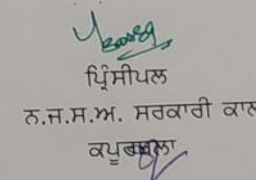 ਪ੍ਰਿੰਸੀਪਲ
ਨ.ਜ.ਸ.ਅ. ਸਰਕਾਰੀ ਕਾਲ
ਕਪੂਰਥਲਾ